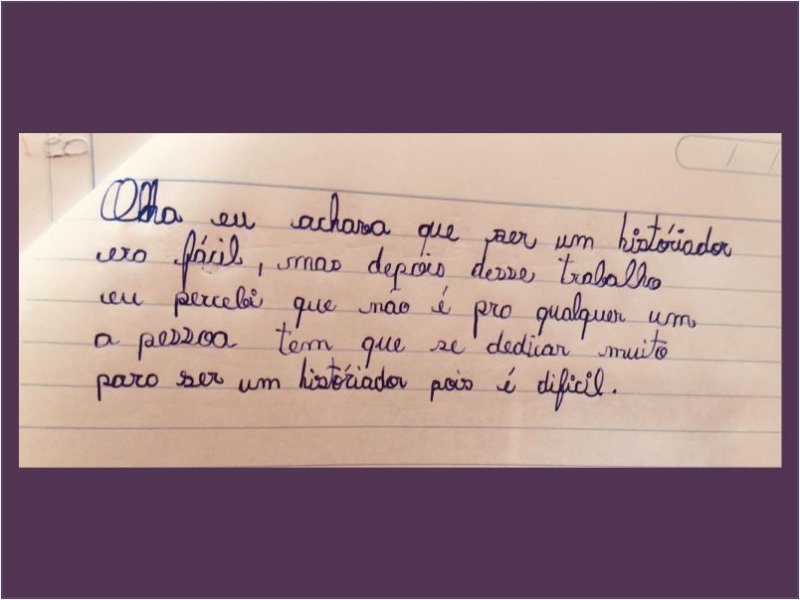 Olha eu achava que ser um históriador
era fácil, mas depois desse trabalho
eu percebi que não é pro qualquer um
a pessoa tem que se dedicar muito
para ser um históriador pois é dificil.